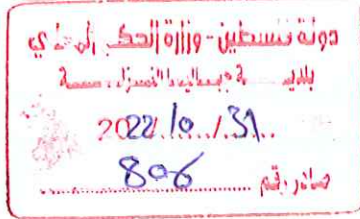 دولة فلسطين - وزارة الحكم المحلي
بلدية
2022/10/31
صادر رقم 806